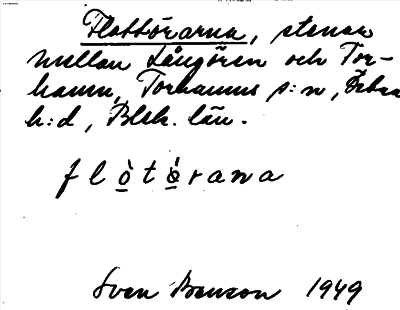 Flottörarna, stenar
mellan Långören och Tor-
hamn, Torhamns s:n, Östra
h:d, Blek. län.
flòtórana
Sven Benson 1949